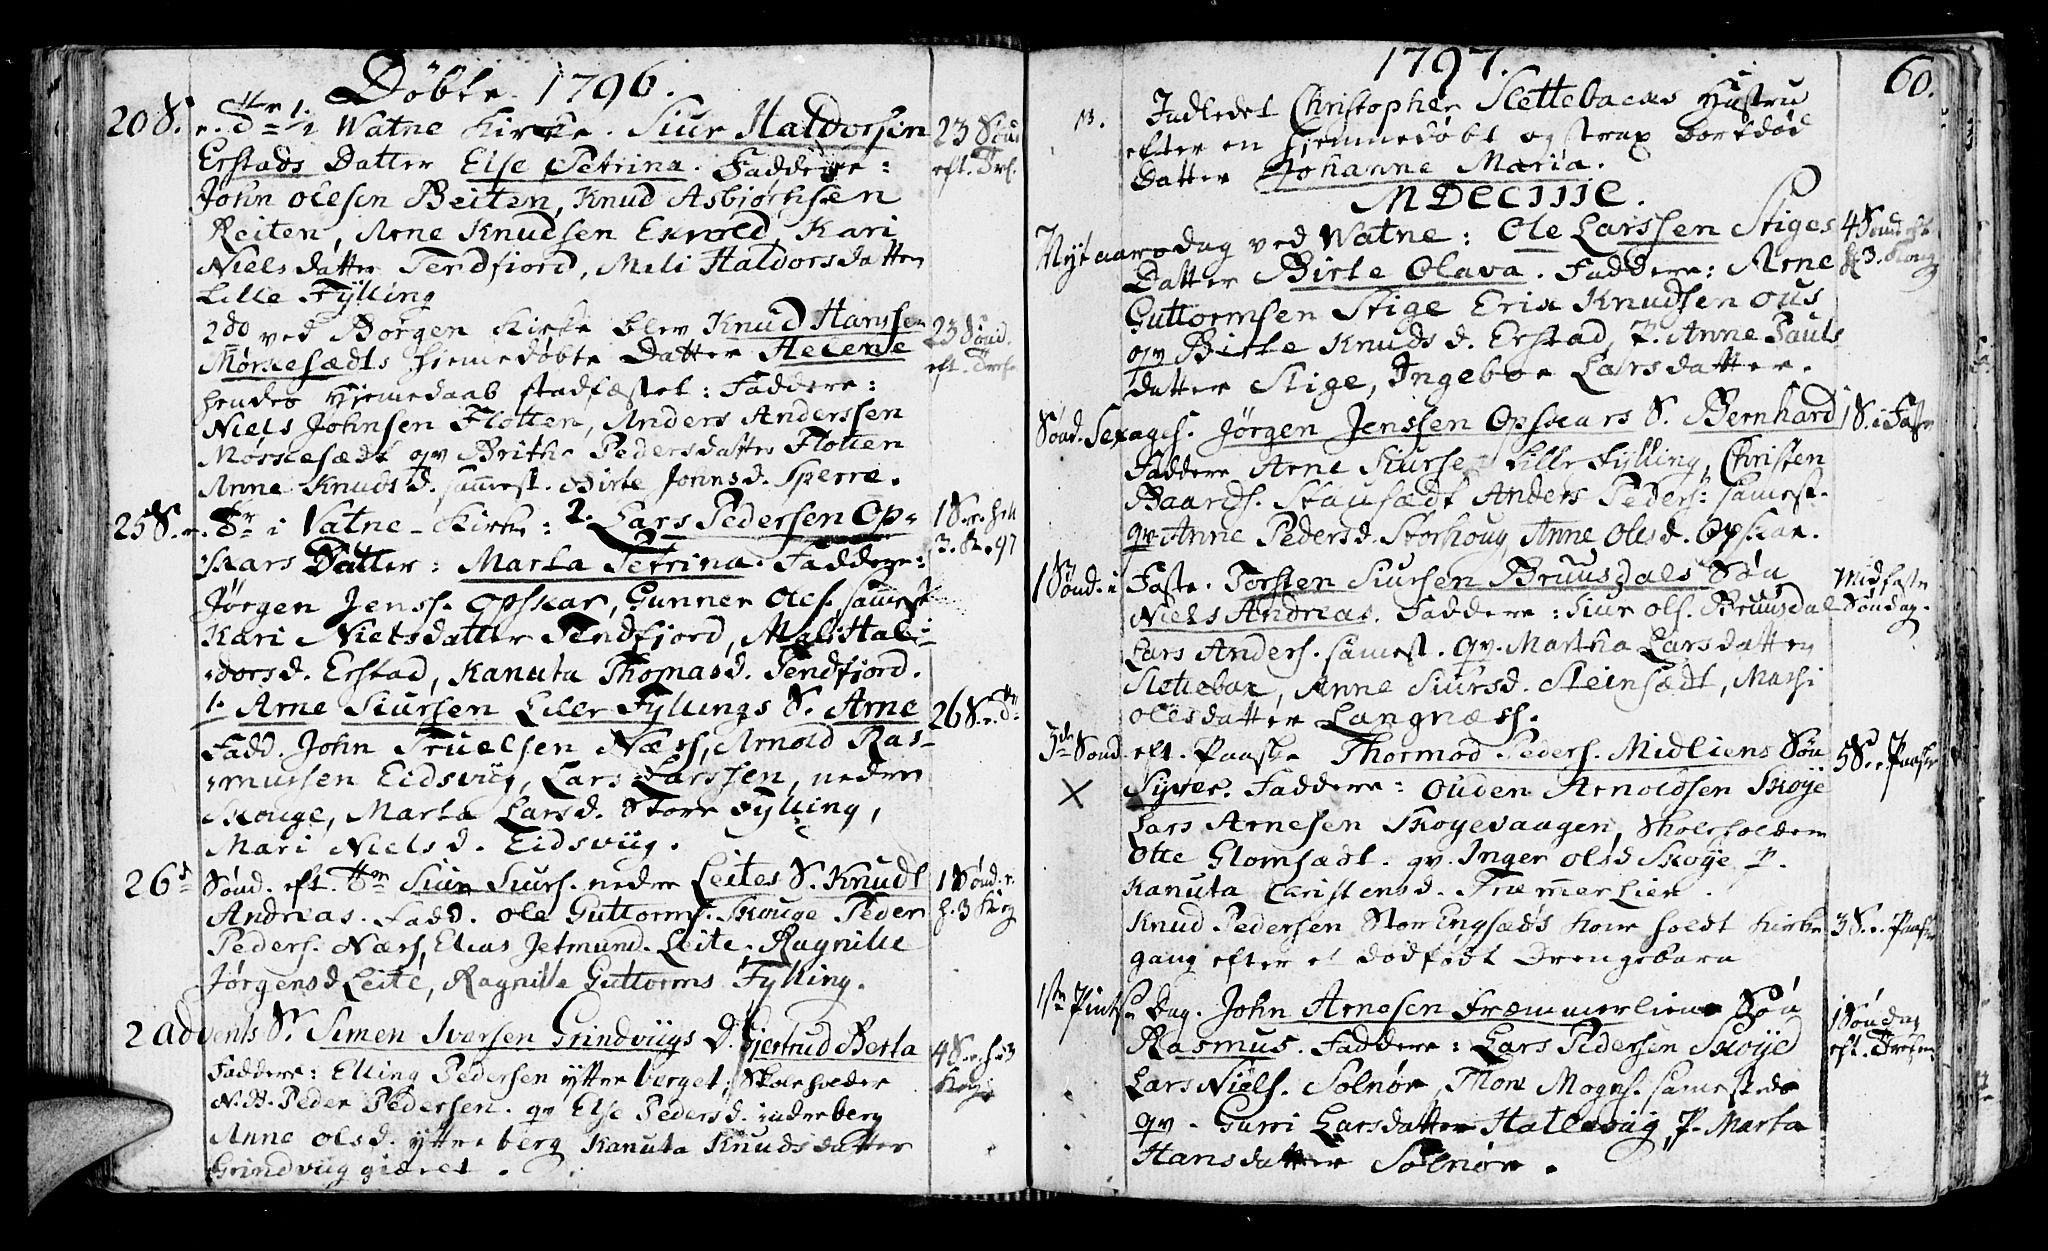 Döbte 1796.
20 S. e. Tr: 1. i Watne Kirke. Siur Haldorsen
Erstads Datter Else Petrina. Faddere:
John Olesen Beiten, Knud Asbjørnsen
Reiten, Arne Knudsen Exvold, Kari
Nielsdatter Tendfiord, Meli Haldorsdatter
Lille Fylling
23 Sønd.
eft. Tref.
2do ved Borgen Kirke blev Knud Hanssen
Mørkesædts hiemedøbte Datter Helene
hendes Hiemedaab stadfæstet: Faddere:
Niels Johnsen Flotten, Anders Anderssen
Mørkesædt qv Brithe Pedersdatter Flotten
Anne Knudsd. samest. Birte Johnsd. Sperre.
23 Sønd.
eft. Trefo
25 S. e. Tr i Vatne Kirke: 2. Lars Pedersen Op-
skars Datter: Marta Petrina. Faddere:
Jørgen Jenss. Opskar, Gunner Ols. samest
Kari Nielsdatter Tendfjord, Mali Hal-
dorsd. Erstad, Kanuta Thomasd. Tendfjord.
1 S. e. h
3. K. 97
1. Arne Siursen Lille Fyllings S. Arne
Fadd. John Truelsen Næss, Arnold Ras-
mussen Eidsviig, Lars Larssen, nedre
Skouge, Marta Larsd. Store Fylling,
Mari Nielsd. Eidsviig.
26 S. e. Tr
26d Sønd. eft. Tr Siur Siurs. nedre Leites S. Knudt
Andreas. Fadd. Ole Guttorms. Skouge Peder
Peders. Næss, Elias Jetmund. Leite, Ragnille
Jørgensd Leite, Ragnille Guttorms Fylling.
1 Sønd. e.
h. 3 Kong
2 Advents S. Simen Iversen Grindviigs D. Gjertrud Berta
Faddere: Elling Pedersen ytterberget, Skoleholder
N. B. Peder Pedersen. qv Else Pedersd. indreberg
Anne Olsd. yttreberg Kanuta Knudsdatter
Grindviig gieret.
4 S. e. h. 3
Kong
1797.
60.
Indledet Christopher Slettebacks Hustru
efter en hiemmedøbt og strax bortdød
Datter Johanne Maria.
MDCCIIIC.
Nytaarsdag ved Watne: Ole Larssen Stiges
Datter Birte Olava. Faddere: Arne
Guttormsen Stige Erik Knudsen Ous
qv Birte Knudsd. Erstad, P. Anne Pauls-
datter Stige, Ingeboe Larsdatter.
4 Sønd. eft
h 3. Kong
Sønd. Sexages. Jørgen Jenssen Opskars S. Bernhard
Faddere Arne Siursen Lille Fylling, Christen
Baards. Stausædt Anders Peders: samest.
qv Anne Pedersd. Storhoug Anne Olesd. Opskar.
1 S. i Faste
1 Sønd. i Faste. Torsten Siursen Bruusdals Søn
Niels Andreas. Faddere: Siur Ols. Bruusdal
Lars Anders. samest. qv. Martha Larsdatter
Slettebak, Anne Siursd. Steinsædt, Mathi
Olesdatter Langnæss.
Midfaste
Søndag.
3de Sønd. eft. Paaske Thormod Peders. Midliens Søn
Syver. Faddere: Ouden Arnoldsen Skoye
Lars Arnesen Skoyevaagen, Skoleholdern
Otte Glomsædt. qv. Inger Olsd Skoye P.
Kanuta Christensd. Fræmmerlien.
5 S. e. Paaske
Knud Pedersen Stor Engsæds Kone holdt Kirke
gang efter et dødfødt Drengebarn
3 S. e. Paaske
1ste Pintse Dag. John Arnesen Fræmmerliens Søn
Rasmus. Faddere: Lars Pedersen Skoye
Lars Niels. Solnør, Thore Mogns. samesteds
qv. Gurri Larsdatter Hallevüg, P. Marta
Hansdatter Solnør.
1 Søndag
eft. Trefo